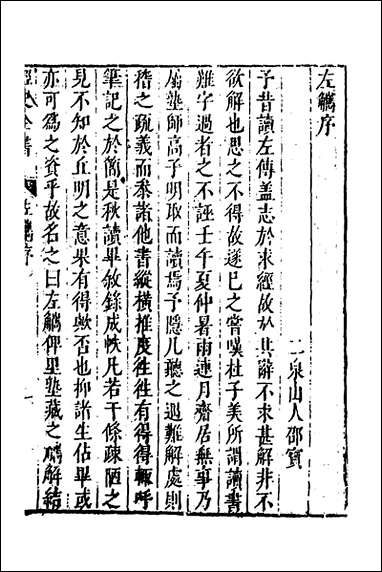 左觿序
二泉山人邵寶
予昔讀左傳蓋志於求經故於其辭不求甚解非不
欲解也思之不得故遂已之嘗嘆杜子美所謂讀書
難字過者之不誣壬午夏仲暑雨連月齋居無事乃
屬塾師高子明取而讀焉予隱几聽之遇難解處則
稽之疏義而參諸他書縱橫推度往往有得得輒呼
筆記之於簡是秋讀畢敘錄成帙凡若干條疎陋之
見不知於丘明之意果有得歟否也抑諸生佔畢或
亦可為之資乎故名之曰左觿俾里塾藏之觿解結
經史全書
左觿序
一